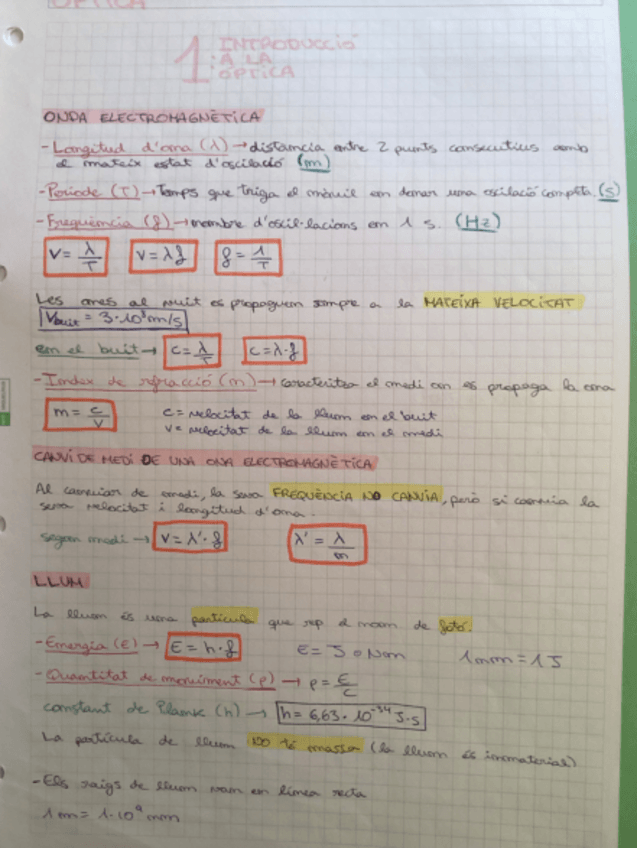 ÓPTICA
1: INTRODUCCIÓ
A LA
ÓPTICA
ONDA ELECTROMAGNÈTICA
- Longitud d'ona (λ) → distancia entre 2 punts consecutius amb
el mateix estat d'oscilació (m)
- Període (T) → Temps que triga el mòvil en donar una oscilació completa. (s)
- Freqüència (f) → nombre d'oscil·lacions en 1 s. (Hz)
V = λ/T V = λf f = 1/T
Les ones al buit es propaguen sempre a la MATEIXA VELOCITAT
Vbuit = 3·10⁸ m/s
en el buit → c = λ/T c = λ·f
- Index de refracció (n) → caracteritza el medi on es propaga la ona
n = c/v c = velocitat de la llum en el buit
v = velocitat de la llum en el medi
CANVI DE MEDI DE UNA ONA ELECTROMAGNÈTICA
Al canviar de medi, la seva FREQÜÈNCIA NO CANVIA, però si canvia la
seva velocitat i longitud d'ona.
segon medi → V = λ'·f λ' = λ/n
LLUM
La llum és una partícula que rep el nom de fotó.
- Energia (E) → E = h·f E = J o Nm 1 Nm = 1 J
- Quantitat de moviment (p) → p = E/c
constant de Plank (h) → h = 6,63·10⁻³⁴ J·s
La partícula de llum NO té massa (la llum és inmaterial)
- Els raigs de llum van en línea recta
1 m = 1·10⁹ nm